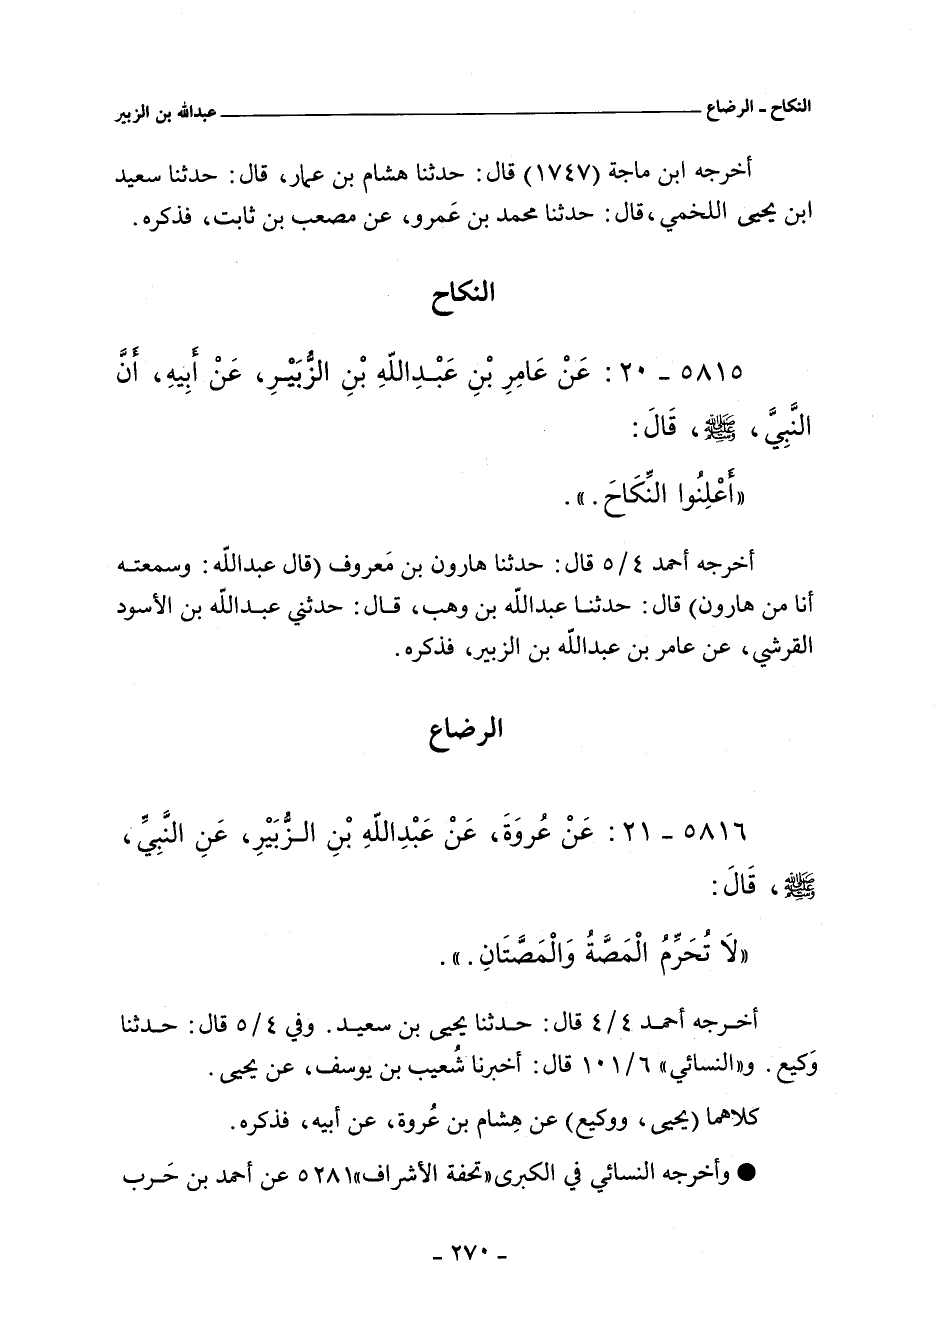 النكاح ـ الرضاع ـــــــــ عبدالله بن الزبير
أخرجه ابن ماجة (١٧٤٧) قال: حدثنا هشام بن عمار، قال: حدثنا سعيد
ابن يحيى اللخمي، قال: حدثنا محمد بن عَمرو، عن مصعب بن ثابت، فذكره.
النكاح
٥٨١٥ ـ ٢٠: عَنْ عَامِرِ بْنِ عَبْدِاللّهِ بْنِ الزُّبَيْرِ، عَنْ أَبِيهِ، أَنَّ
النَّبِيَّ، ﷺ، قَالَ:
«أَعْلِنُوا النِّكَاحَ.».
أخرجه أحمد ٥/٤ قال: حدثنا هارون بن مَعروف (قال عبدالله: وسمعته
أنا من هارون) قال: حدثنا عبدالله بن وهب، قال: حدثني عبدالله بن الأسود
القرشي، عن عامر بن عبدالله بن الزبير، فذكره.
الرضاع
٥٨١٦ ـ ٢١: عَنْ عُروَةَ، عَنْ عَبْدِاللّهِ بْنِ الزُّبَيْرِ، عَنِ النَّبِيِّ،
ﷺ، قَالَ:
«لَا تُحَرِّمُ الْمَصَّةُ وَالْمَصَّتَانِ.».
أخرجه أحمد ٤/٤ قال: حدثنا يحيى بن سعيد. وفي ٥/٤ قال: حدثنا
وَكيع. و«النسائي» ١٠١/٦ قال: أخبرنا شُعيب بن يوسف، عن يحيى.
كلاهما (يحيى، ووكيع) عن هِشام بن عُروة، عن أبيه، فذكره.
● وأخرجه النسائي في الكبرى «تحفة الأشراف» ٥٢٨١ عن أحمد بن حَرب
ـ ٢٧٠ ـ